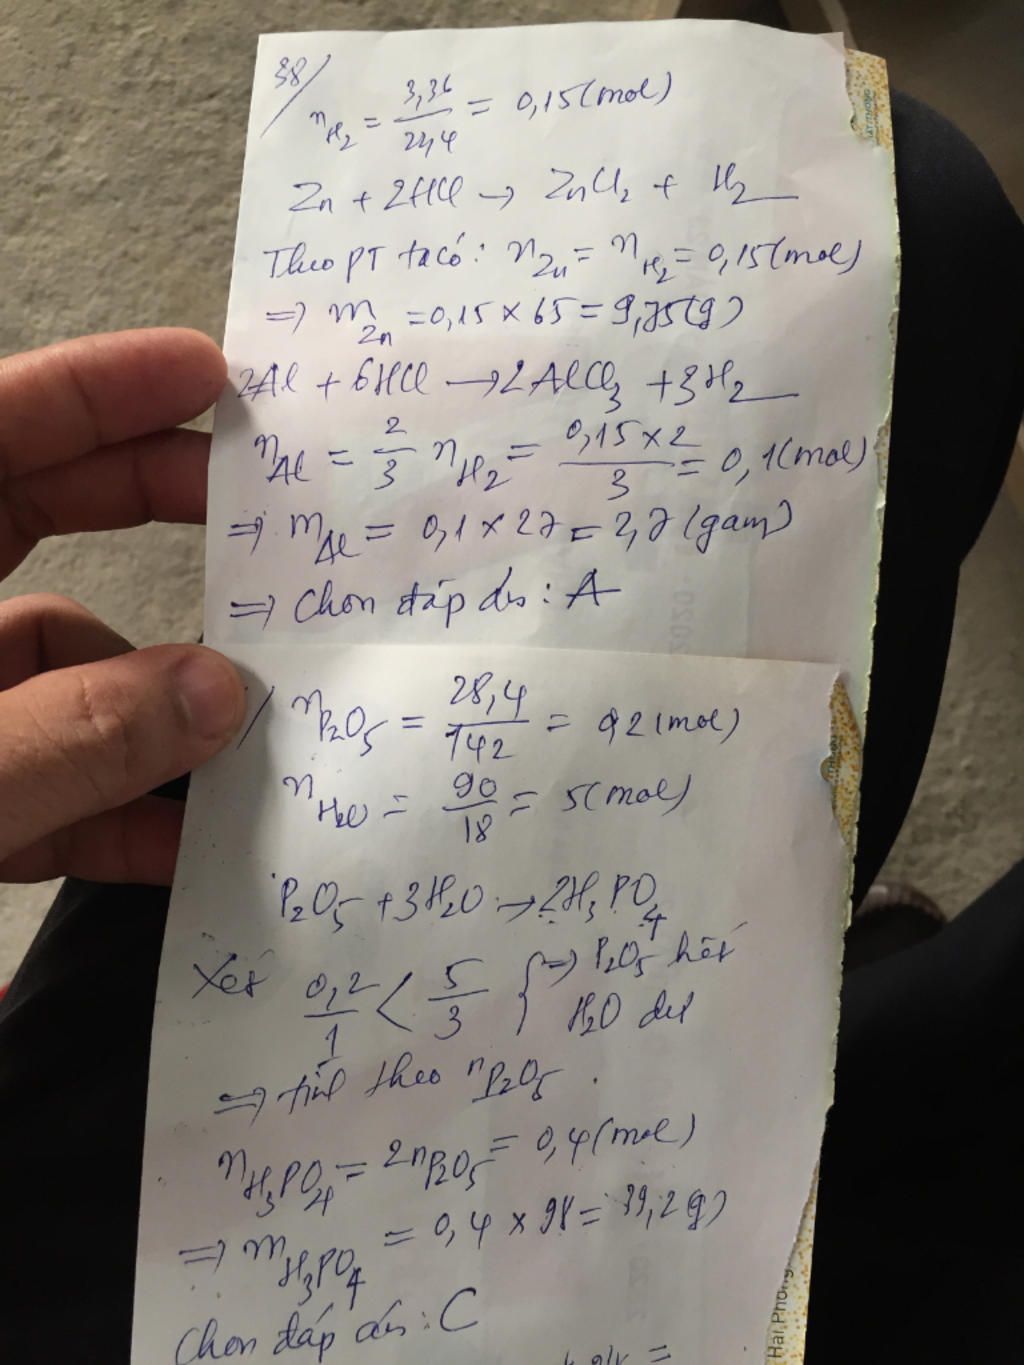 38/
nH₂ = 3,36/22,4 = 0,15 (mol)
Zn + 2HCl → ZnCl₂ + H₂
Theo PT ta có: nZn = nH₂ = 0,15 (mol)
=> mZn = 0,15 × 65 = 9,75 (g)
2Al + 6HCl → 2AlCl₃ + 3H₂
nAl = 2/3 nH₂ = 0,15 × 2/3 = 0,1 (mol)
=> mAl = 0,1 × 27 = 2,7 (gam)
=> Chọn đáp án: A
/ nP₂O₅ = 28,4/142 = 0,2 (mol)
nH₂O = 90/18 = 5 (mol)
P₂O₅ + 3H₂O → 2H₃PO₄
Xét 0,2/1 < 5/3 { => P₂O₅ hết
H₂O dư
=> tính theo nP₂O₅.
nH₃PO₄ = 2nP₂O₅ = 0,4 (mol)
=> mH₃PO₄ = 0,4 × 98 = 39,2 g)
Chọn đáp án: C
Hai Phong